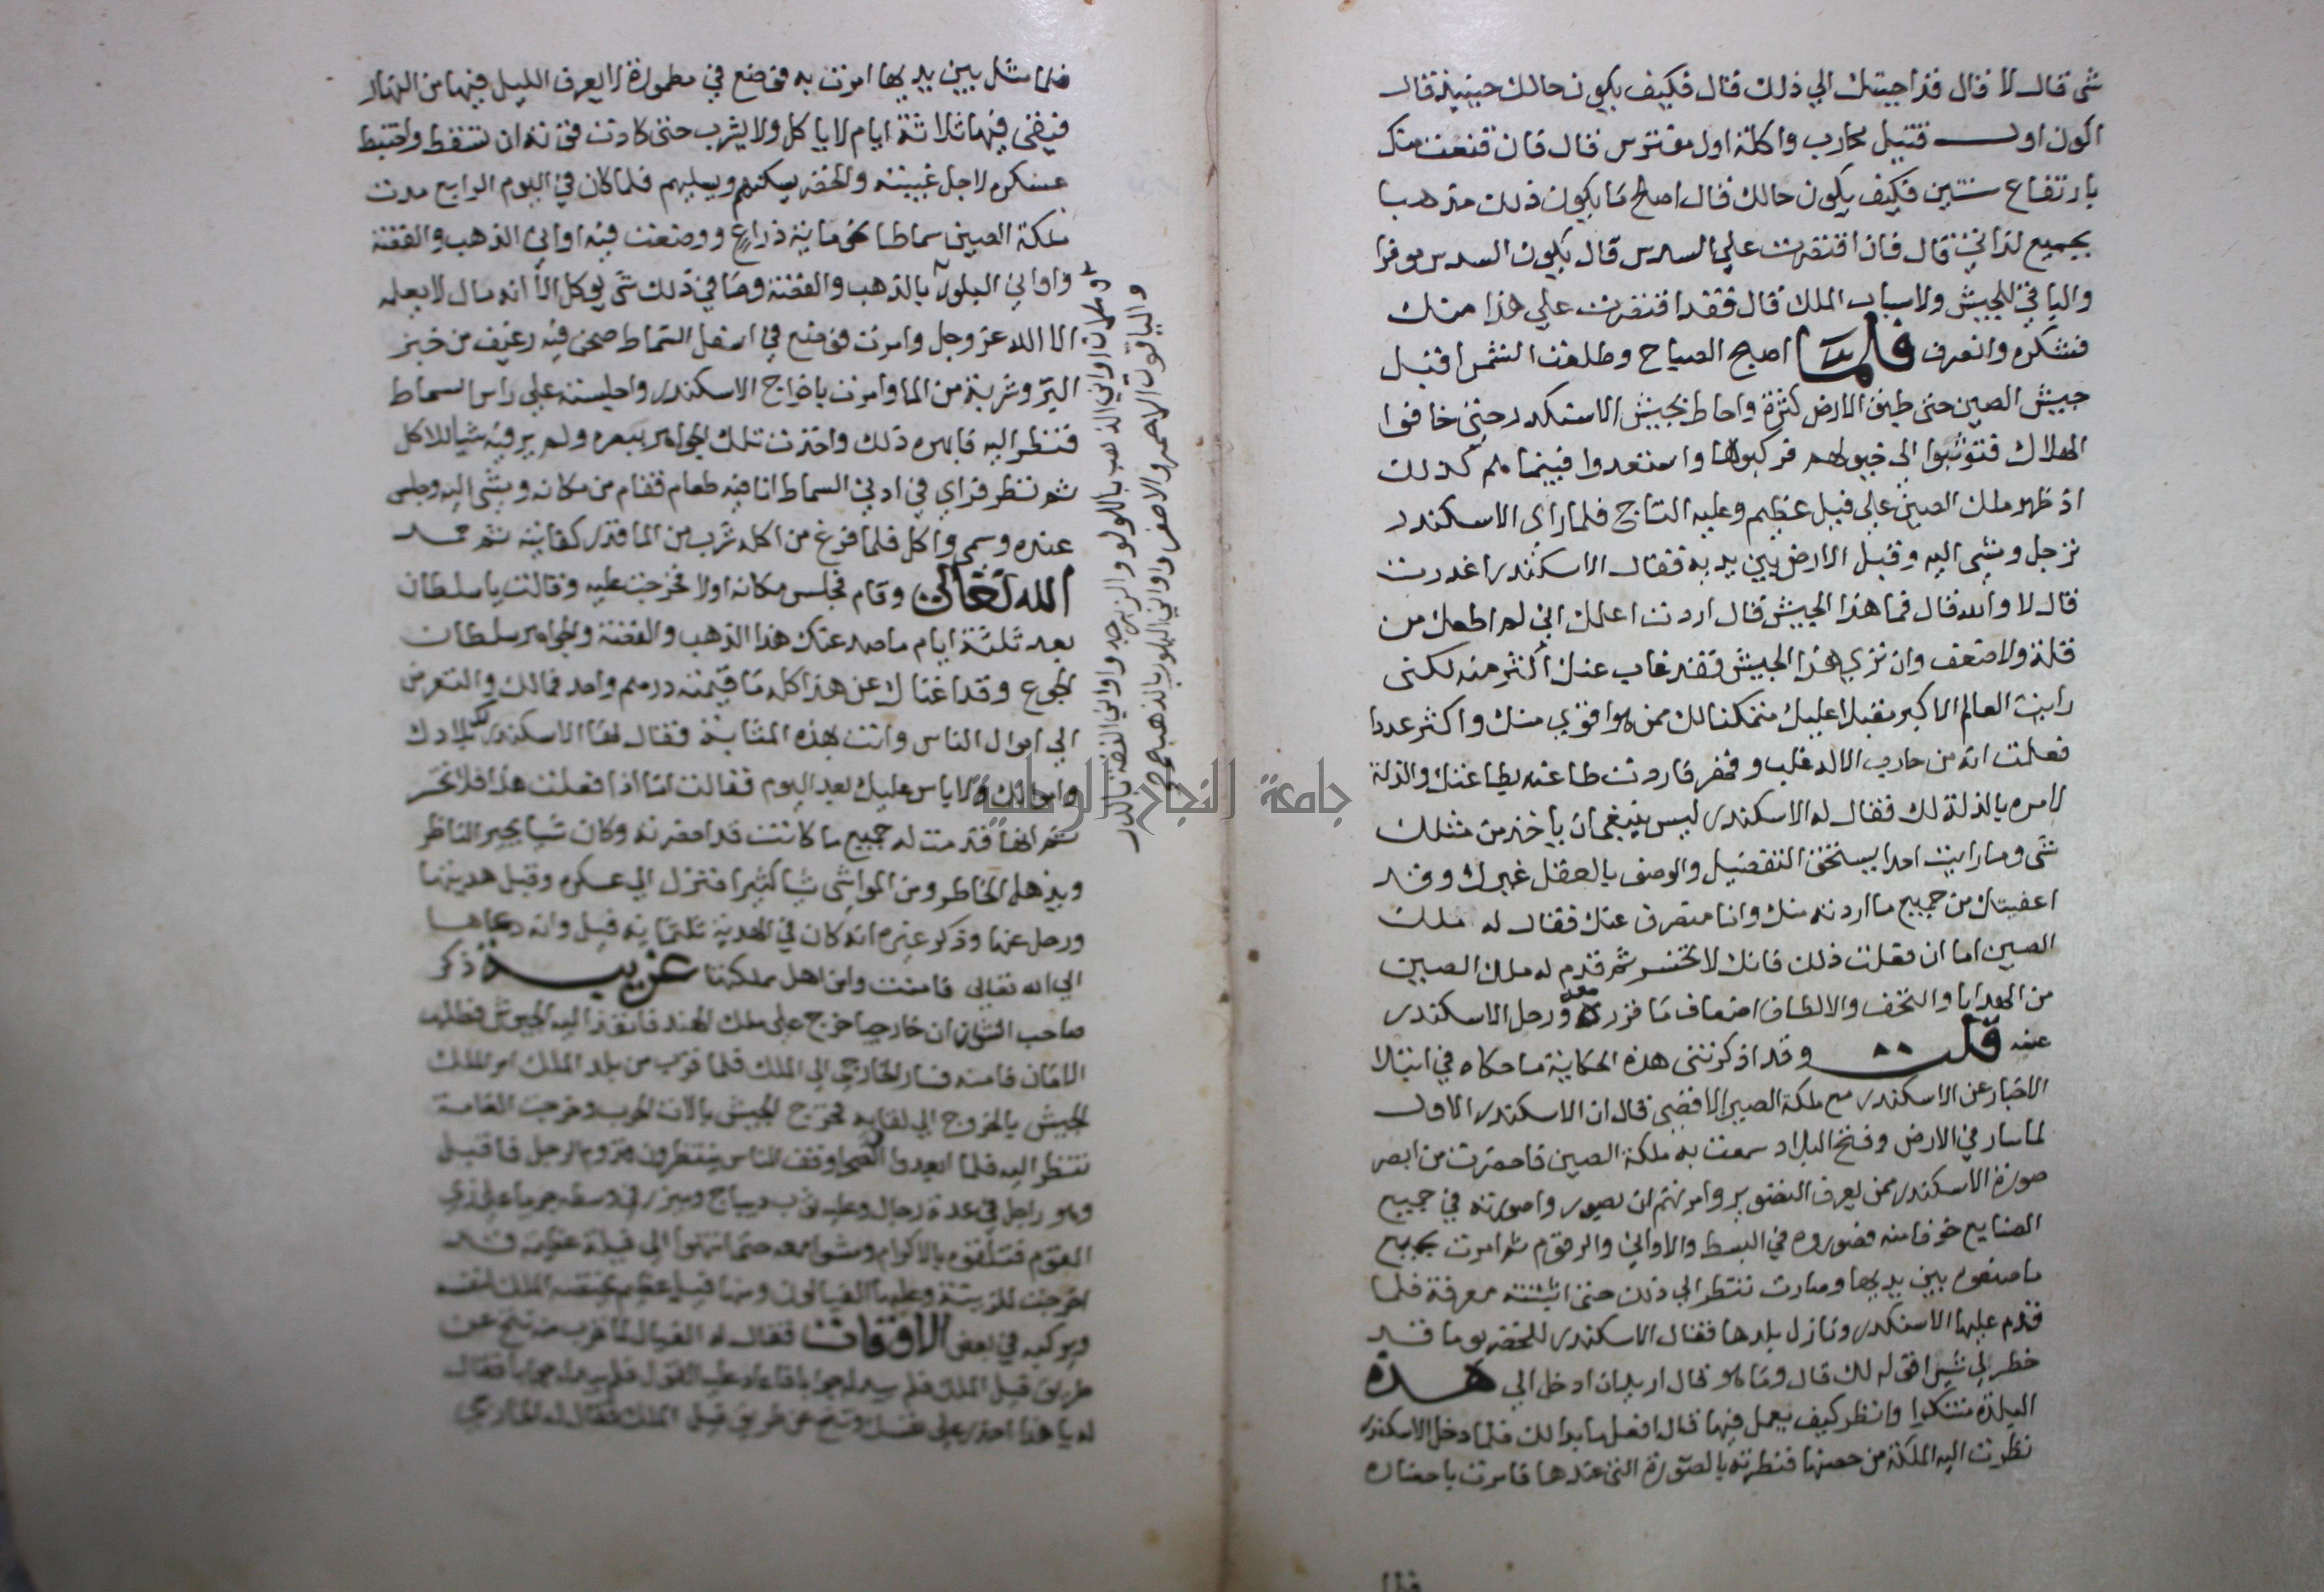 شي قال لا قال قد اجبتك الي ذلك قال فكيف يكون حالك حينيذ قال
اكون اول قتيل محارب واكلة اول مفترس قال فان قنعت منك
بارتفاع سنتين فكيف يكون حالك قال اصلح مما يكون ذلك مذهبا
بجميع لذاتي قال فان اقتصرت علي السدس قال يكون السدس موفرا
والباقي للجيش ولاسباب الملك قال فقد اقتصرت علي هذا منك
فشكره وانصرف فلما اصبح الصباح وطلعت الشمس اقبل
جيش الصين حتي طبق الارض كثرة واحاط بجيش الاسكندر حتي خافوا
الهلاك فتوثبوا الي خيولهم فركبوها واستعدوا فبينما هم كذلك
اذ ظهر ملك الصين علي فيل عظيم وعليه التاج فلما راي الاسكندر
ترجل ومشي اليه وقبل الارض بين يديه فقال الاسكندر اغدرت
قال لا والله قال فما هذا الجيش قال اردت اعلمك اني لم اطعك من
قلة ولا ضعف وان تري هذا الجيش فقد غاب عنك اكثر منه لكني
رايت العالم الاكبر مقبلا عليك متمكنا لك ممن هو اقوي منك واكثر عددا
فعلمت انه من حارب الاله غلب وقهر فاردت طاعته بطاعتك والذلة
لامره بالذلة لك فقال له الاسكندر ليس ينبغي ان ياخذ من مثلك
شي وما رايت احدا يستحق التفضيل والوصف بالعقل غيرك وقد
اعفيتك من جميع ما اردته منك وانا منصرف عنك فقال له ملك
الصين اما ان فعلت ذلك فانك لا تخسر ثم قدم له ملك الصين
من الهدايا والتحف والالطاف اضعاف ما قرره معه ورحل الاسكندر
عنه قلت وقد اذكرتني هذه الحكاية ما حكاه في ابتلا
الاخيار عن الاسكندر مع ملكة الصين الاقصي قال ان الاسكندر الاول
لما سار في الارض وفتح البلاد سمعت به ملكة الصين فاحضرت من ابصر
صورة الاسكندر ممن يعرف التصوير وامرتهم ان يصوروا صورته في جميع
الصنايع خوفا منه فصوروه في البسط والاواني والرقوم ثم امرت بجميع
ما صنعوه بين يديها وصارت تنظر الي ذلك حتي اثبتته معرفة فلما
قدم عليها الاسكندر ونازل بلدها فقال الاسكندر للخضر يوما قد
خطر لي شي اقوله لك قال وما هو قال اريد ان ادخل الي هذه
البلدة متنكرا وانظر كيف يعمل فيها قال افعل ما بدا لك فلما دخل الاسكندر
نظرت اليه الملكة من حصنها فنظرته بالصورة التي عندها فامرت باحضاره
فلما
فلما مثل بين يديها امرت به فوضع في مطمورة لا يعرف الليل فيها من النهار
فبقي فيها ثلاثة ايام لا ياكل ولا يشرب حتي كادت قوته ان تسقط واختبط
عسكره لاجل غيبته والخضر يسكنهم ويسليهم فلما كان في اليوم الرابع مدت
ملكة الصين سماطا نحو ماية ذراع ووضعت فيه اواني الذهب والفضة
واواني البلور بالذهب والفضة وما في ذلك شي يوكل الا انه مال لا يعلمه
الا الله عز وجل وامرت فوضع في اسفل السماط صحن فيه رغيف من خبز
البر وشربة من الما وامرت باخراج الاسكندر واجلسته علي راس السماط
فنظر اليه فابهره ذلك واخذت تلك الجواهر ببصره ولم ير فيه شيا للاكل
ثم نظر فراي في ادني السماط انا فيه طعام فقام من مكانه ومشي اليه وجلس
عنده وسمي واكل فلما فرغ من اكله شرب من الما قدر كفايته ثم حمد
الله تعالى وقام فجلس مكانه اولا فخرجت عليه وقالت يا سلطان
بعد ثلثة ايام ما صد عنك هذا الذهب والفضة والجواهر سلطان
الجوع وقد اغناك عن هذا كله ما قيمته درهم واحد فمالك والتعرض
الي اموال الناس وانت بهذه المثابة فقال لها الاسكندر لك بلادك
واموالك ولا باس عليك بعد اليوم فقالت اما اذا فعلت هذا فلا تخسر
ثم انها قدمت له جميع ما كانت قد احضرته وكان شيا يحير الناظر
ويذهل الخاطر ومن المواشي شيا كثيرا فنزل الي عسكره وقبل هديتها
ورحل عنها وذكر غيره انه كان في الهدية ثلثماية فيل وانه دعاها
الي الله تعالي فامنت وامن اهل مملكتها غريبة ذكر
صاحب النشوان ان خارجيا خرج علي ملك الهند فانفذ اليه الجيوش فطلب
الامان فامنه فسار الخارجي الي الملك فلما قرب من بلد الملك امر الملك
الجيش بالخروج الي لقايه فخرج الجيش بالات الحرب وخرجت العامة
تنتظر اليه فلما ابعدوا الصحرا وقف الناس ينتظرون قدوم الرجل فاقبل
وهو راجل في عدة رجال وعليه ثوب ديباج وميزر في وسطه جريا علي زي
القوم فتلقوه بالاكرام ومشوا معه حتي انتهوا الي فيلة عظيمة قد
اخرجت للزينة وعليها الفيالون ومنها فيل عظيم يختصه الملك لنفسه
ويركبه في بعض الاوقات فقال له الفيال لما قرب منه تنح عن
طريق فيل الملك فلم يرد له جوابا فاعاد عليه القول فلم يرد له جوابا فقال
له يا هذا احذر علي نفسك وتنح عن طريق فيل الملك فقال له الخارجي
وطعان اواني الذهب باللولو والزبرجد واواني الفضة بالدر
والياقوت الاحمر والاصفر واواني البلور بالذهب صح
جامعة النجاح الوطنية